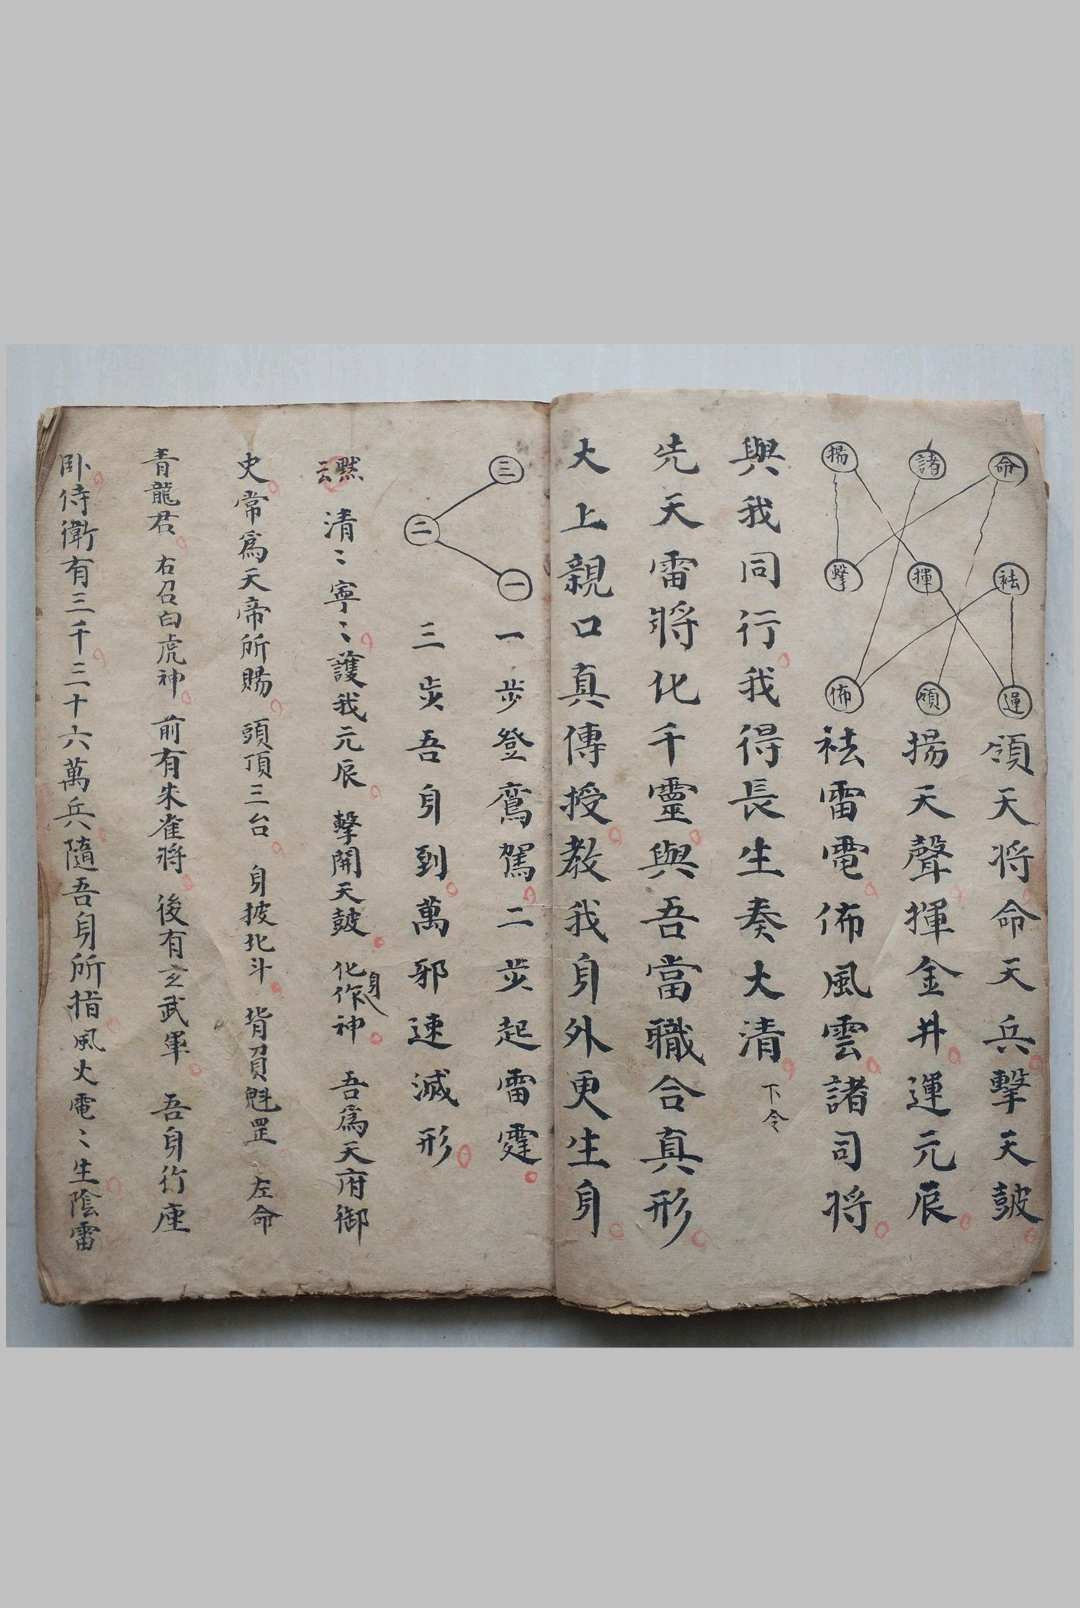 命 諸 揚
袪 揮 擊
運 領 佈
領天将命天兵擊天皷
揚天聲揮金井運元辰
袪雷電佈風雲諸司将
與我同行我得長生奏大清 下令
先天雷將化千靈與吾當職合真形
大上親口真傳授教我身外更生身
三
二
一
一步登鸾駕二步起雷霆
三步吾身到萬邪速滅形
默云 清〻寧〻護我元辰 擊開天皷 化作身神 吾為天府御
史常為天帝所賜 頭頂三台 身披北斗 背負魁罡 左命
青龍君 右召白虎神 前有朱雀将 後有玄武軍 吾身行座
卧侍衛有三千三十六萬兵隨吾身所指風火電〻生陰雷